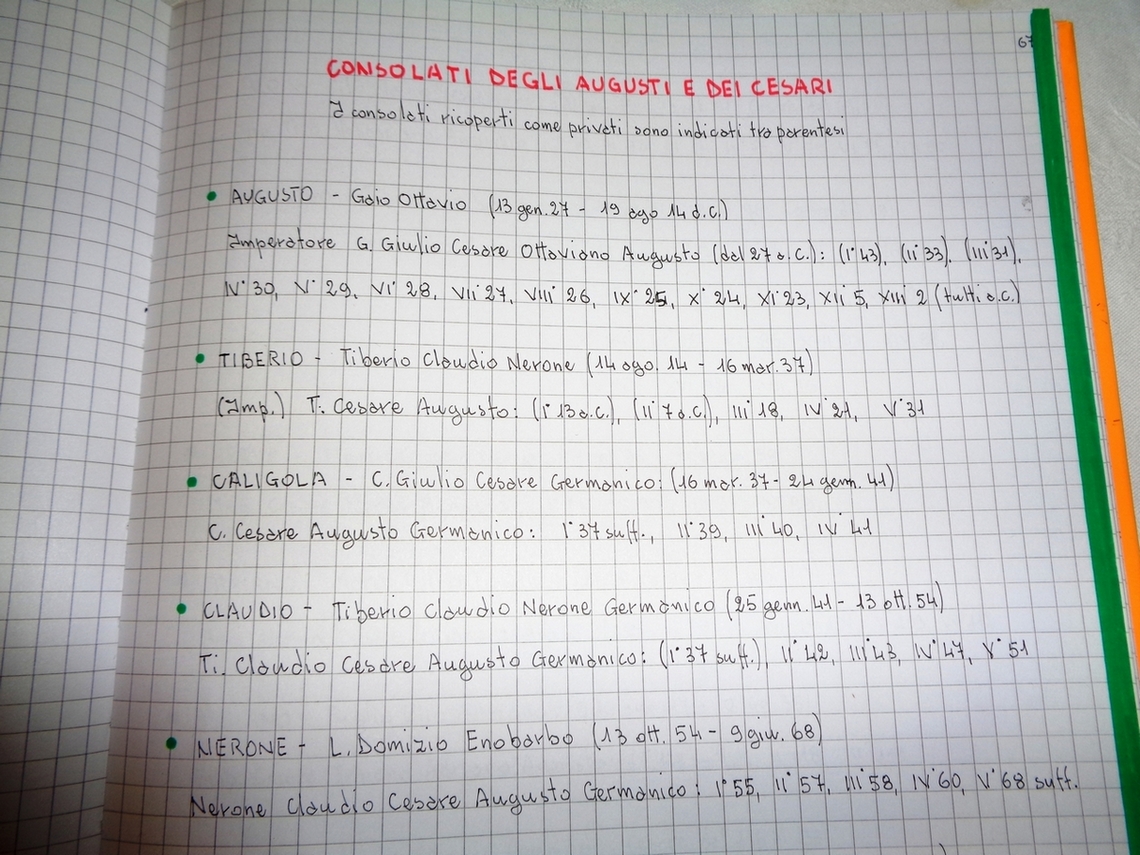 67
CONSOLATI DEGLI AUGUSTI E DEI CESARI
I consolati ricoperti come privati sono indicati tra parentesi
• AUGUSTO - Gaio Ottavio (13 gen. 27 - 19 ago 14 d.C.)
Imperatore G. Giulio Cesare Ottaviano Augusto (dal 27 a.C.): (I° 43), (II° 33), (III° 31),
IV° 30, V° 29, VI° 28, VII° 27, VIII° 26, IX° 25, X° 24, XI° 23, XII° 5, XIII° 2 (tutti a.C.)
• TIBERIO - Tiberio Claudio Nerone (14 ago. 14 - 16 mar. 37)
(Imp.) T. Cesare Augusto: (I° 13 a.C.), (II° 7 a.C.), III° 18, IV° 21, V° 31
• CALIGOLA - C. Giulio Cesare Germanico: (16 mar. 37 - 24 genn. 41)
C. Cesare Augusto Germanico: I° 37 suff., II° 39, III° 40, IV° 41
• CLAUDIO - Tiberio Claudio Nerone Germanico (25 genn. 41 - 13 ott. 54)
Ti. Claudio Cesare Augusto Germanico: (I° 37 suff.), II° 42, III° 43, IV° 47, V° 51
• NERONE - L. Domizio Enobarbo (13 ott. 54 - 9 giu. 68)
Nerone Claudio Cesare Augusto Germanico: I° 55, II° 57, III° 58, IV° 60, V° 68 suff.